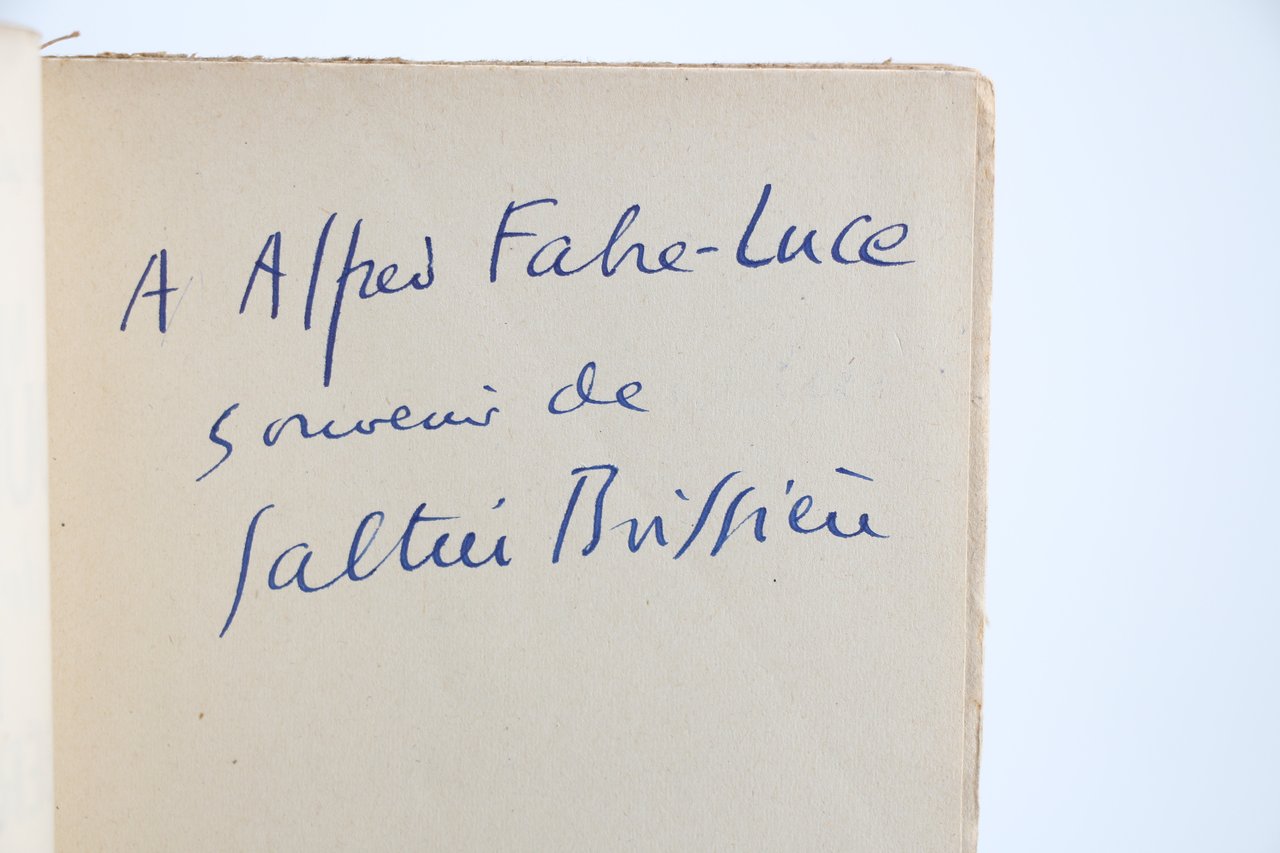 A Alfred Fabre-Luce
souvenir de
Galtier Boissière